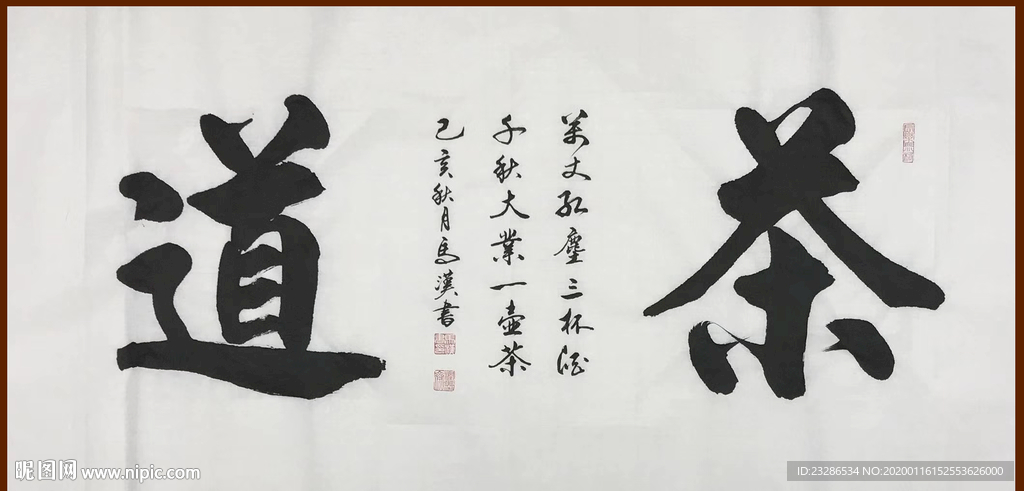 茶
萬丈紅塵三杯酒
千秋大業一壺茶
己亥秋月馬漢書
道
昵图网 www.nipic.com
ID:23286534 NO:20200116152553626000